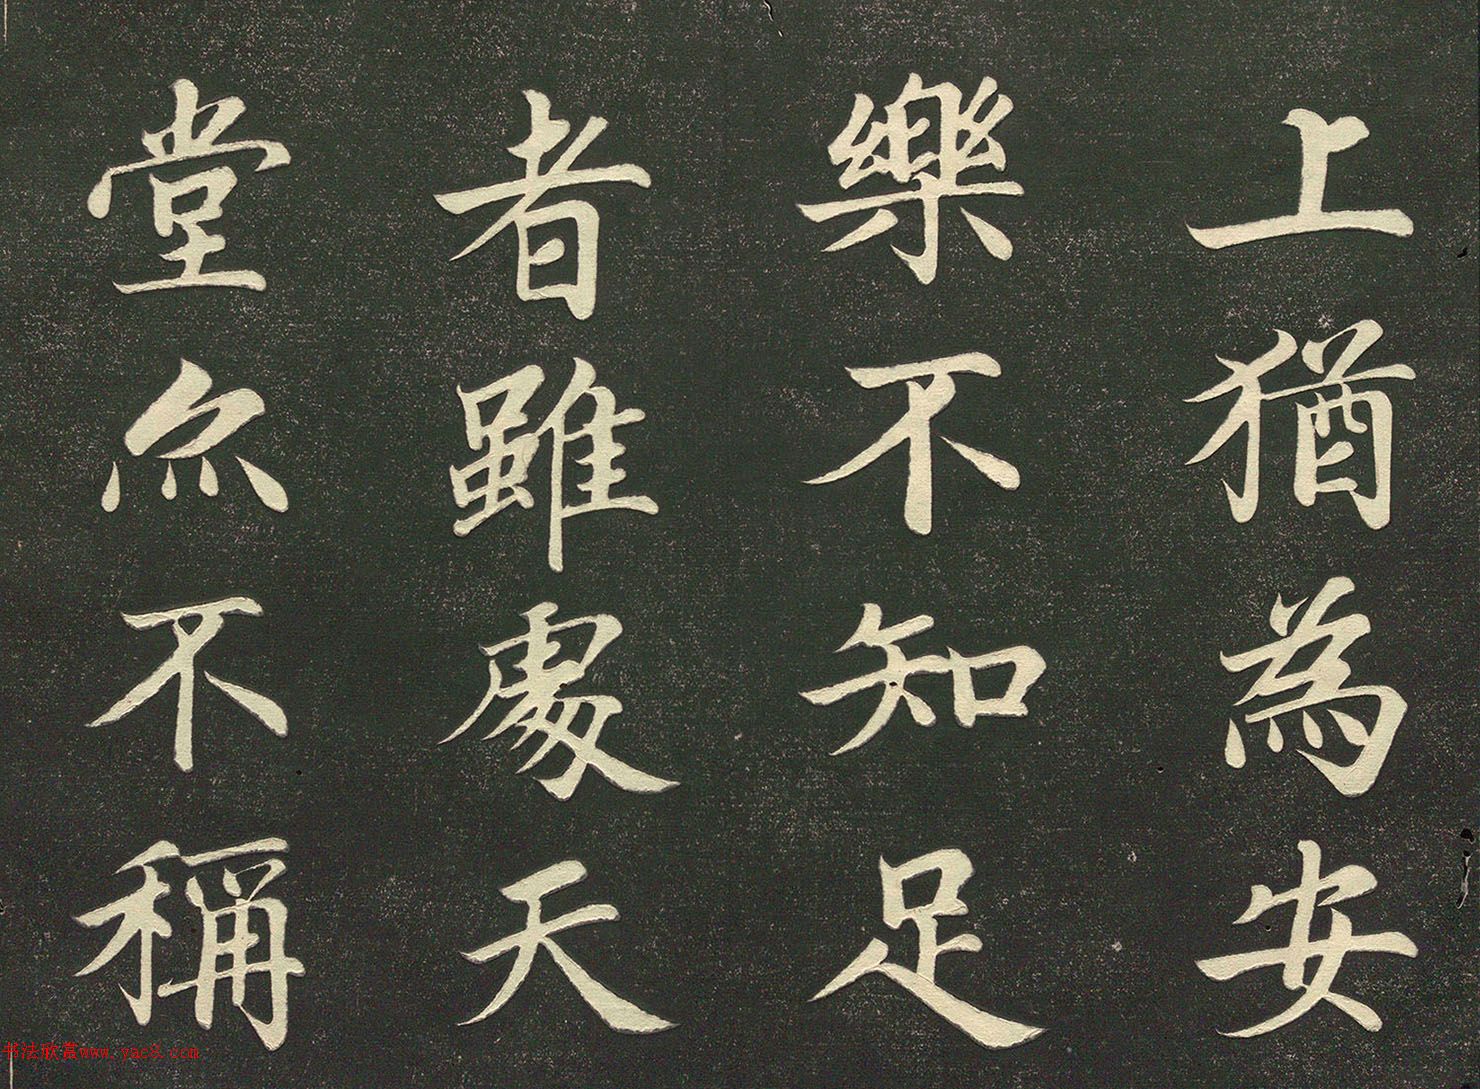 上猶為安
樂不知足
者雖處天
堂亦不稱
书法欣赏www.yac8.com